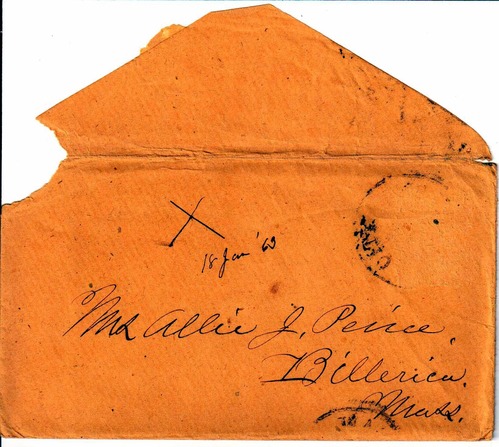 X
18 Jan '63
Mrs Allie J. Peirce,
Billerica.
Mass.